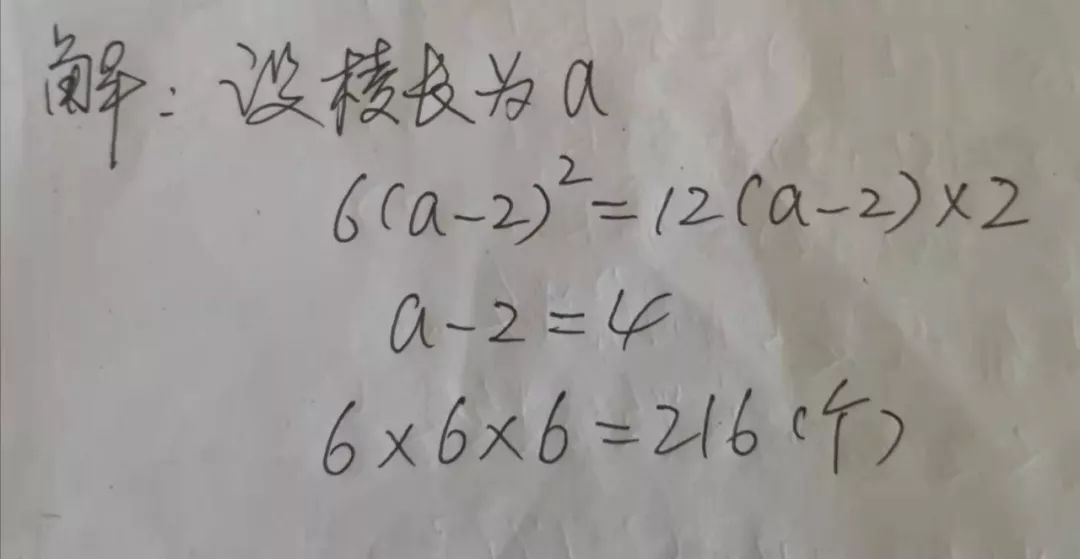 解：设棱长为a
6(a-2)²=12(a-2)×2
a-2=4
6×6×6=216(个)